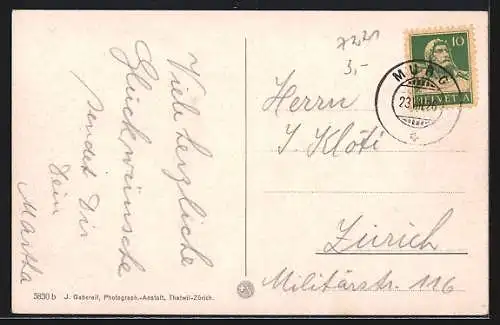 Viele herzliche
Glückwünsche
sendet Dir
Dein
Martha
7221
3,-
10
HELVETIA
MURG
23
Herrn
J. Klöti
Zürich
Militärstr. 116
3830 b J. Gaberell, Photograph.-Anstalt, Thalwil-Zürich.